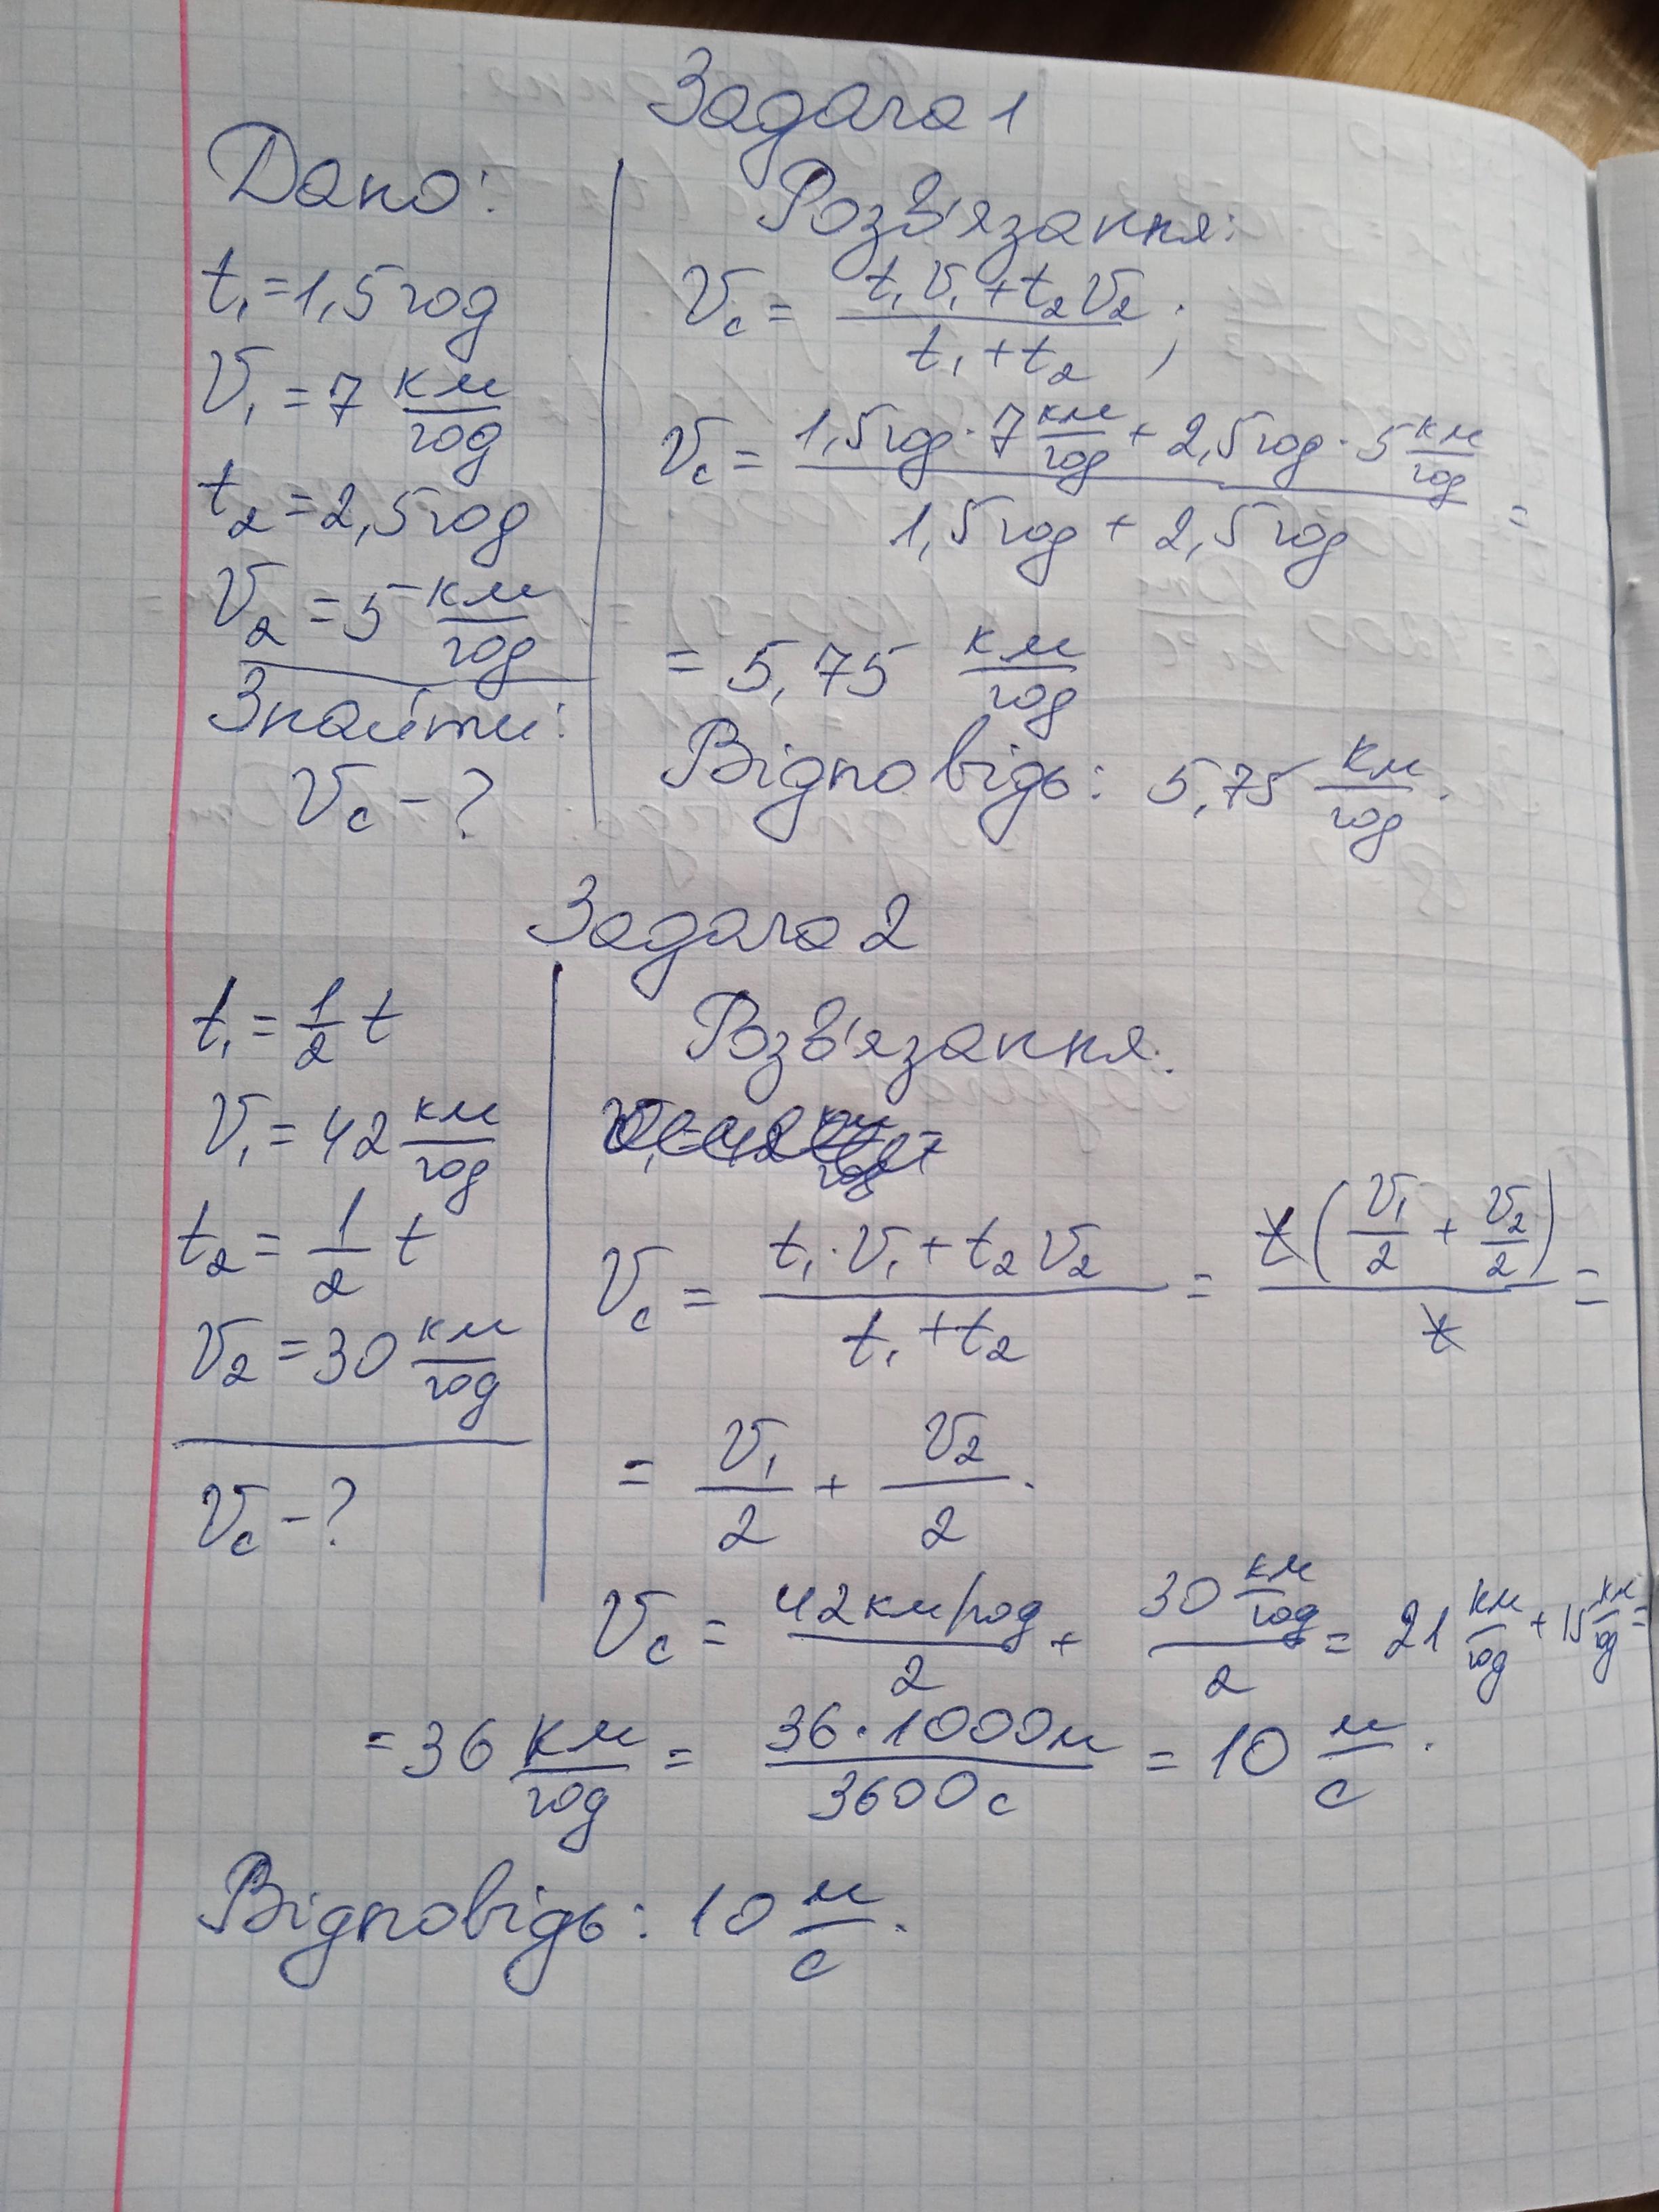 Задача 1
Дано:
t₁ = 1,5 год
V₁ = 7 км/год
t₂ = 2,5 год
V₂ = 5 км/год
Знайти:
Vc - ?
Розв'язання:
Vc = (t₁V₁ + t₂V₂)/(t₁ + t₂);
Vc = (1,5 год · 7 км/год + 2,5 год · 5 км/год)/(1,5 год + 2,5 год) =
= 5,75 км/год
Відповідь: 5,75 км/год.
Задача 2
t₁ = 1/2 t
V₁ = 42 км/год
t₂ = 1/2 t
V₂ = 30 км/год
Vc - ?
Розв'язання.
Vc = (t₁ · V₁ + t₂V₂)/(t₁ + t₂) = t(V₁/2 + V₂/2)/t =
= V₁/2 + V₂/2.
Vc = 42 км/год/2 + 30 км/год/2 = 21 км/год + 15 км/год =
= 36 км/год = 36 · 1000м/3600с = 10 м/с.
Відповідь: 10 м/с.